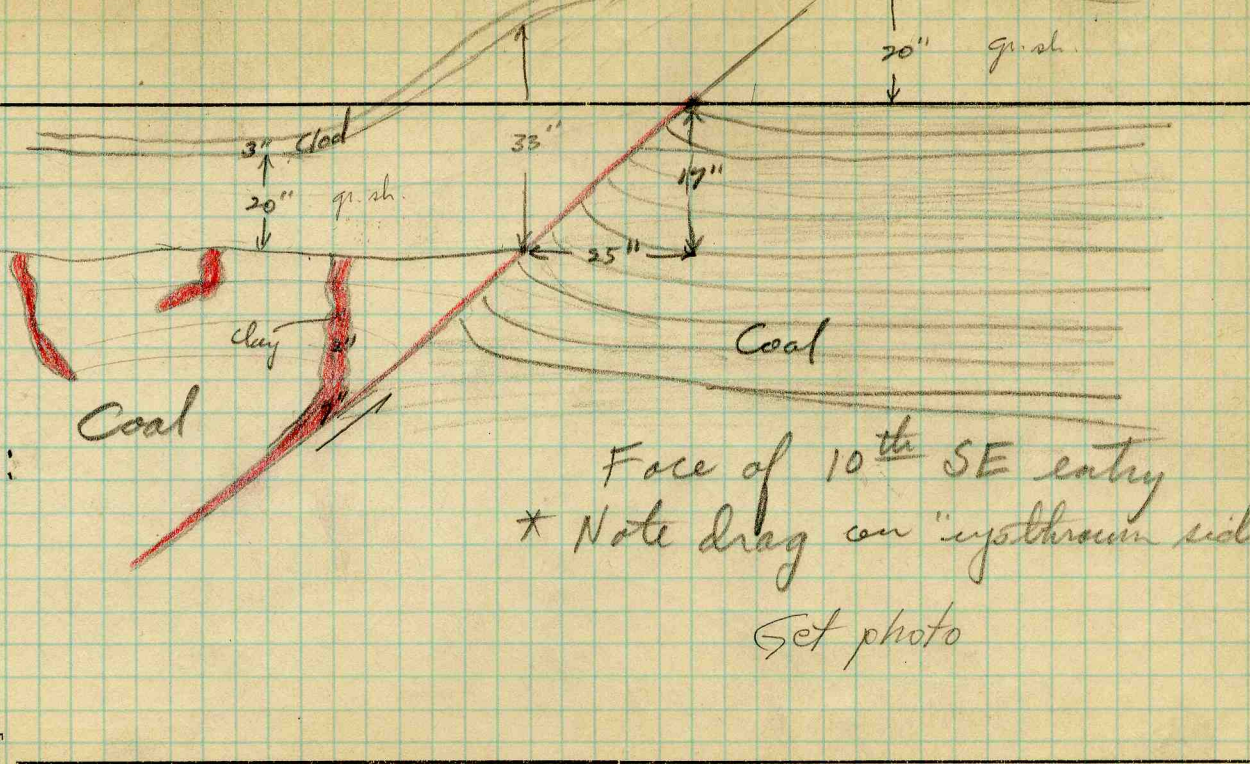 20" gr. sh.
3" Clod
33"
17"
20" gr. sh.
25"
clay
2"
Coal
1"
Coal
Face of 10th SE entry
* Note drag on "upthrown sid
Get photo